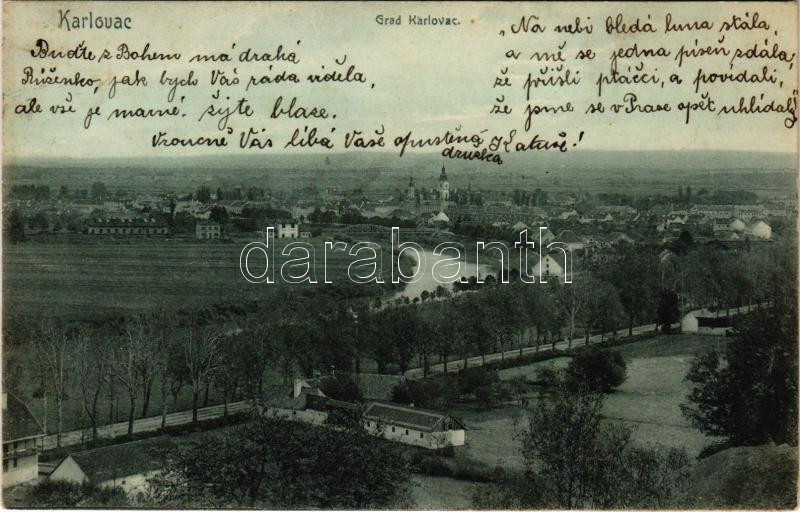 Karlovac
Grad Karlovac.
Buďte z Bohem má drahá
Růženko, jak bych Vás ráda viděla,
ale vše je marné. žijte blase.
Vroucně Vás líbá Vaše opuštěná Katuše!
družka
„Na nebi bledá luna stála,
a mě se jedna píseň zdála,
že přišli ptáčci, a povídali,
že jsme se v Prase opět uhlídaly"
darabanth.